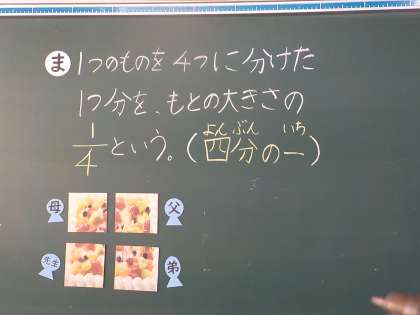 ま 1つのものを4つに分けた
1つ分を、もとの大きさの
1/4という。(四分の一)
よんぶん いち
母 父
先生 弟